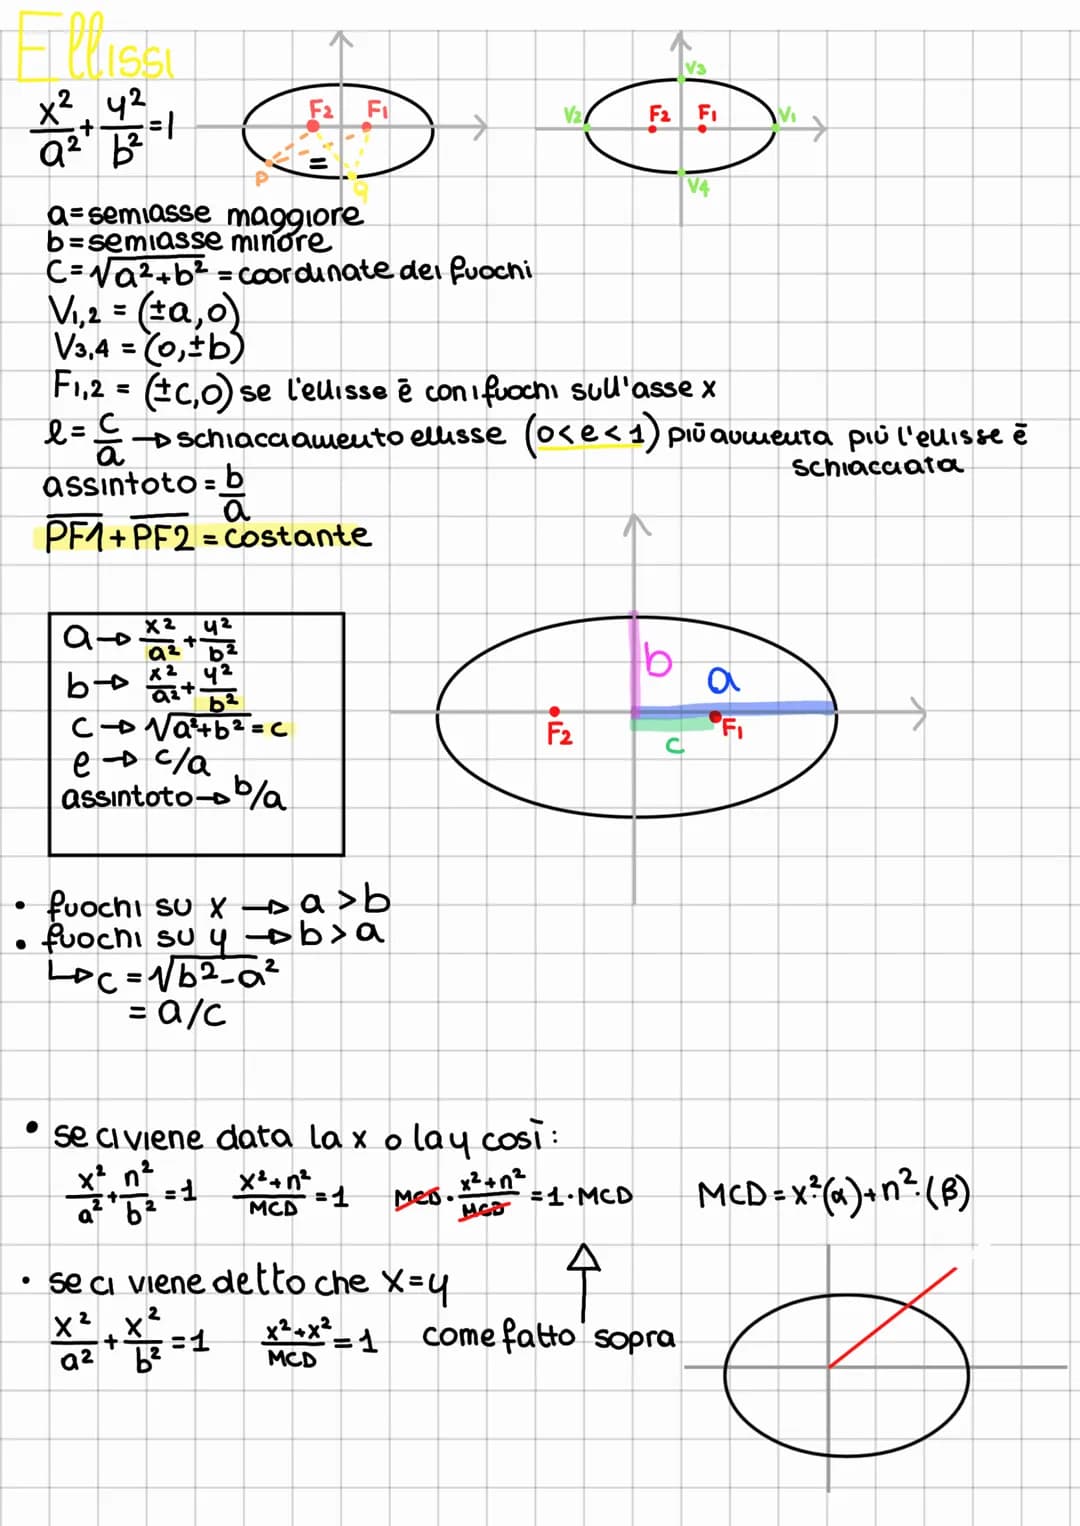 Ellissi
x²/a² + y²/b² = 1
F2 F1
P = Q
V3
V2 F2 F1 V1
V4
a=semiasse maggiore
b=semiasse minore
C=√a²+b² = coordinate dei fuochi
V1,2 = (±a,0)
V3,4 = (0,±b)
F1,2 = (±c,0) se l'ellisse ē con i fuochi sull'asse x
e = c/a → schiacciamento ellisse (0<e<1) più aumenta più l'ellisse ē
schiacciata
assintoto = b/a
PF1 + PF2 = costante
a → x²/a² + y²/b²
b → x²/a² + y²/b²
c → √a²+b² = c
e → c/a
assintoto → b/a
b
a
F2 F1
c
• fuochi su x → a >b
• fuochi su y → b>a
↳ c = √b²-a²
= a/c
• se ci viene data la x o la y così:
x²/a² + n²/b² = 1 x²+n²/MCD = 1 MCD · x²+n²/MCD = 1·MCD MCD = x²·(α)+n²·(β)
• se ci viene detto che x=y
x²/a² + x²/b² = 1 x²+x²/MCD = 1 come fatto sopra